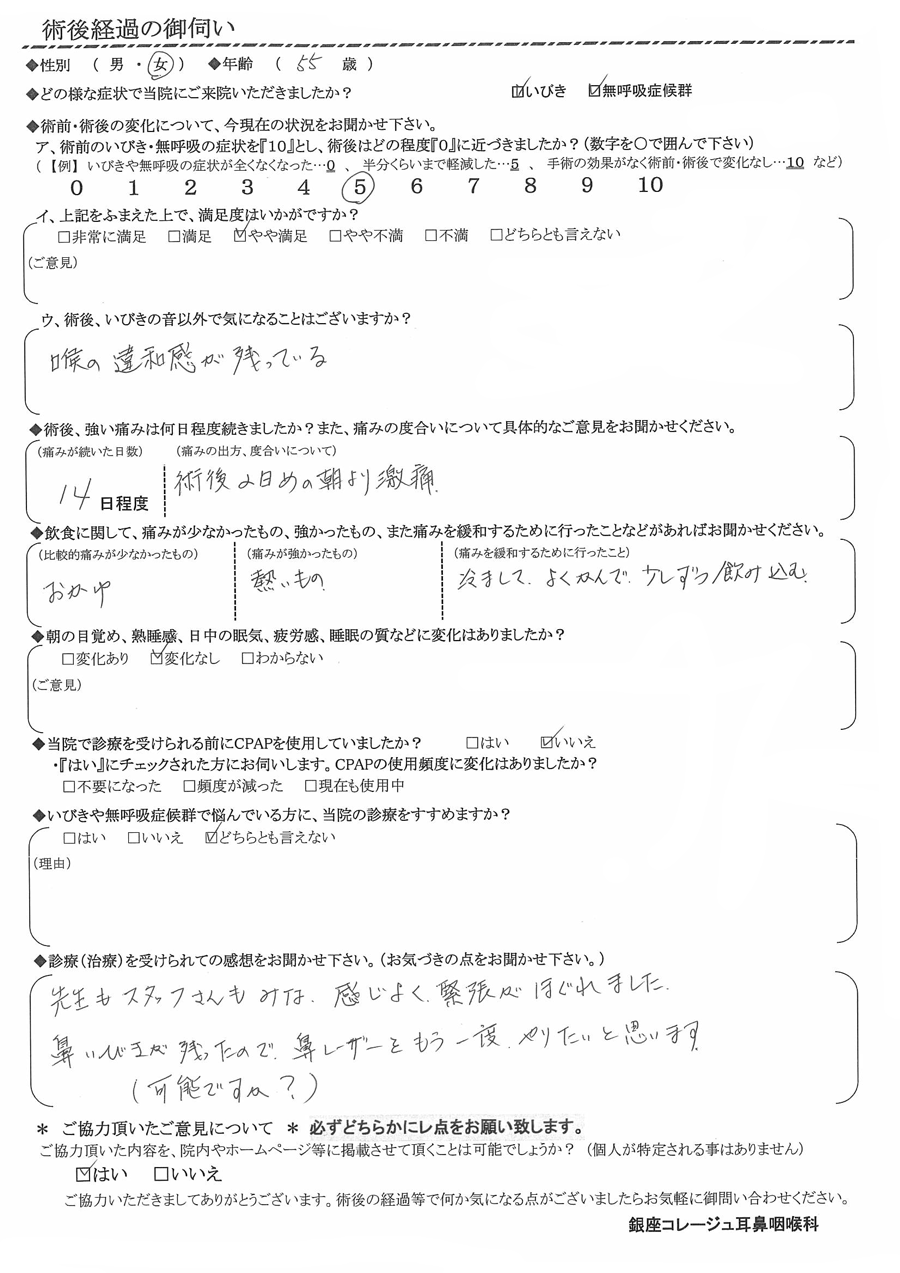 術後経過の御伺い
◆性別 ( 男 ・ 女 ) ◆年齢 ( 55 歳 )
◆どの様な症状で当院にご来院いただきましたか? ☑いびき ☑無呼吸症候群
◆術前・術後の変化について、今現在の状況をお聞かせ下さい。
ア、術前のいびき・無呼吸の症状を『10』とし、術後はどの程度『0』に近づきましたか?(数字を〇で囲んで下さい)
(【例】 いびきや無呼吸の症状が全くなくなった…0 、 半分くらいまで軽減した…5 、 手術の効果がなく術前・術後で変化なし…10 など)
0 1 2 3 4 5 6 7 8 9 10
イ、上記をふまえた上で、満足度はいかがですか?
□非常に満足 □満足 ☑やや満足 □やや不満 □不満 □どちらとも言えない
(ご意見)
ウ、術後、いびきの音以外で気になることはございますか?
喉の違和感が残っている
◆術後、強い痛みは何日程度続きましたか?また、痛みの度合いについて具体的なご意見をお聞かせください。
(痛みが続いた日数) (痛みの出方、度合いについて)
14 日程度 術後2日めの朝より激痛
◆飲食に関して、痛みが少なかったもの、強かったもの、また痛みを緩和するために行ったことなどがあればお聞かせください。
(比較的痛みが少なかったもの) (痛みが強かったもの) (痛みを緩和するために行ったこと)
おかゆ 熱いもの 冷まして、よくかんで、少しずつ飲み込む
◆朝の目覚め、熟睡感、日中の眠気、疲労感、睡眠の質などに変化はありましたか?
□変化あり ☑変化なし □わからない
(ご意見)
◆当院で診療を受けられる前にCPAPを使用していましたか? □はい ☑いいえ
・『はい』にチェックされた方にお伺いします。CPAPの使用頻度に変化はありましたか?
□不要になった □頻度が減った □現在も使用中
◆いびきや無呼吸症候群で悩んでいる方に、当院の診療をすすめますか?
□はい □いいえ ☑どちらとも言えない
(理由)
◆診療(治療)を受けられての感想をお聞かせ下さい。(お気づきの点をお聞かせ下さい。)
先生もスタッフさんもみな、感じよく、緊張がほぐれました。
鼻いびきが残ったので、鼻レーザーをもう一度、やりたいと思います。
(可能ですか?)
＊ ご協力頂いたご意見について ＊ 必ずどちらかにレ点をお願い致します。
ご協力頂いた内容を、院内やホームページ等に掲載させて頂くことは可能でしょうか? (個人が特定される事はありません)
☑はい □いいえ
ご協力いただきましてありがとうございます。術後の経過等で何か気になる点がございましたらお気軽に御問い合わせください。
銀座コレージュ耳鼻咽喉科